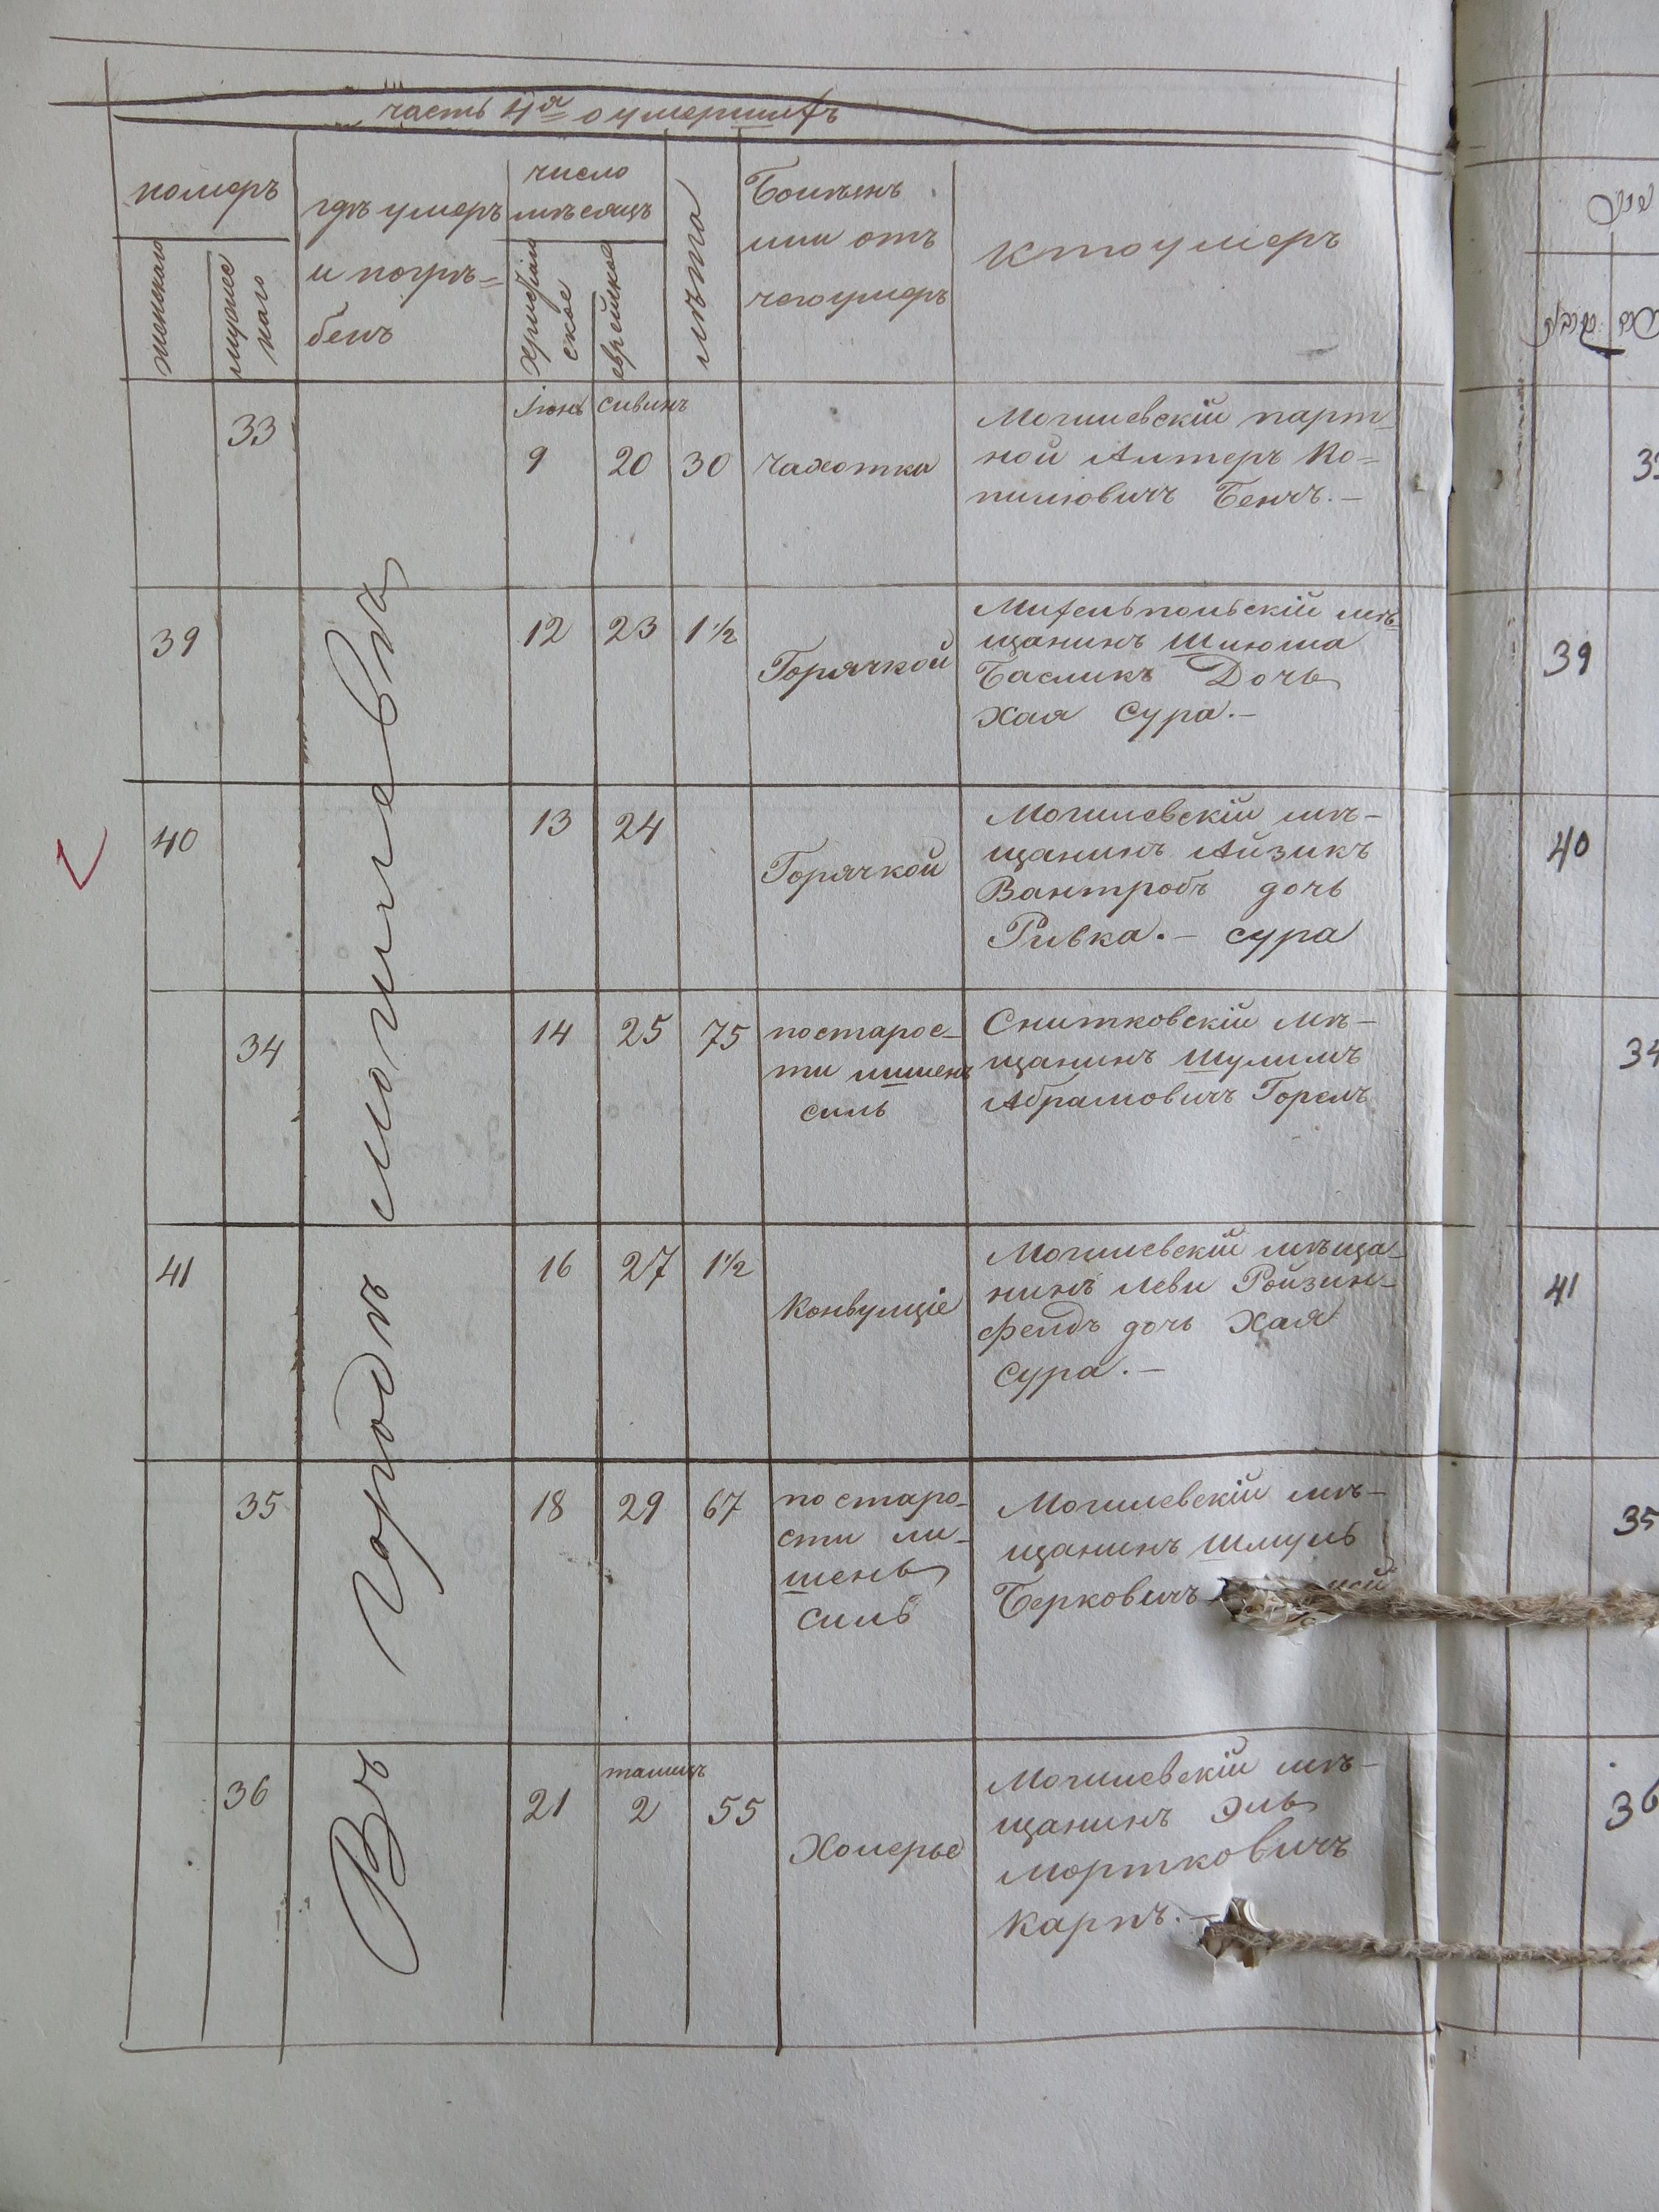 часть 4я о умершихъ
номеръ
женскаго
мужес
каго
гдѣ умеръ
и погрѣ=
бенъ
число
мѣсяцъ
христіан
ское
еврейское
лѣта
Болѣзнь
или отъ
чего умеръ
кто умеръ
Въ городѣ могилевѣ
33
Іюнь сивинъ
9 20 30 Чахотка
Могилевскій парт-
ной Алтеръ Ко=
пилювичъ Бенчъ.—
39
12 23 1½
Горячкой
мѣ=
щанинъ Шлюма
Басликъ Дочь
Хая Сура.—
40
13 24
Горячкой
Могилевскій мѣ-
щанинъ Айзикъ
Вантробъ дочь
Ривка.— сура
34
14 25 75
по старос-
ти лишенъ
силъ
Снитковскій мѣ-
щанинъ Шулимъ
Абрамовичъ Горелъ
41
16 27 1½
Конвулціе
Могилевскій мѣща-
нинъ Леви Ройзин-
фелдъ дочь Хая
сура.—
35
18 29 67
по старо-
сти ли-
шенъ
силъ
Могилевскій мѣ-
щанинъ Шмуль
Берковичъ
36
21
тамизъ
2 55
Холерье
Могилевскій мѣ-
щанинъ Эль
Мортковичъ
Карпъ.—
39
40
34
41
35
36